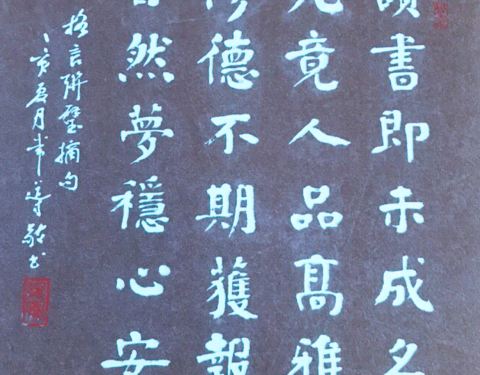 讀書即未成名
究竟人品髙雅
修德不期獲報
自然夢穩心安
格言聯璧摘句
夏月